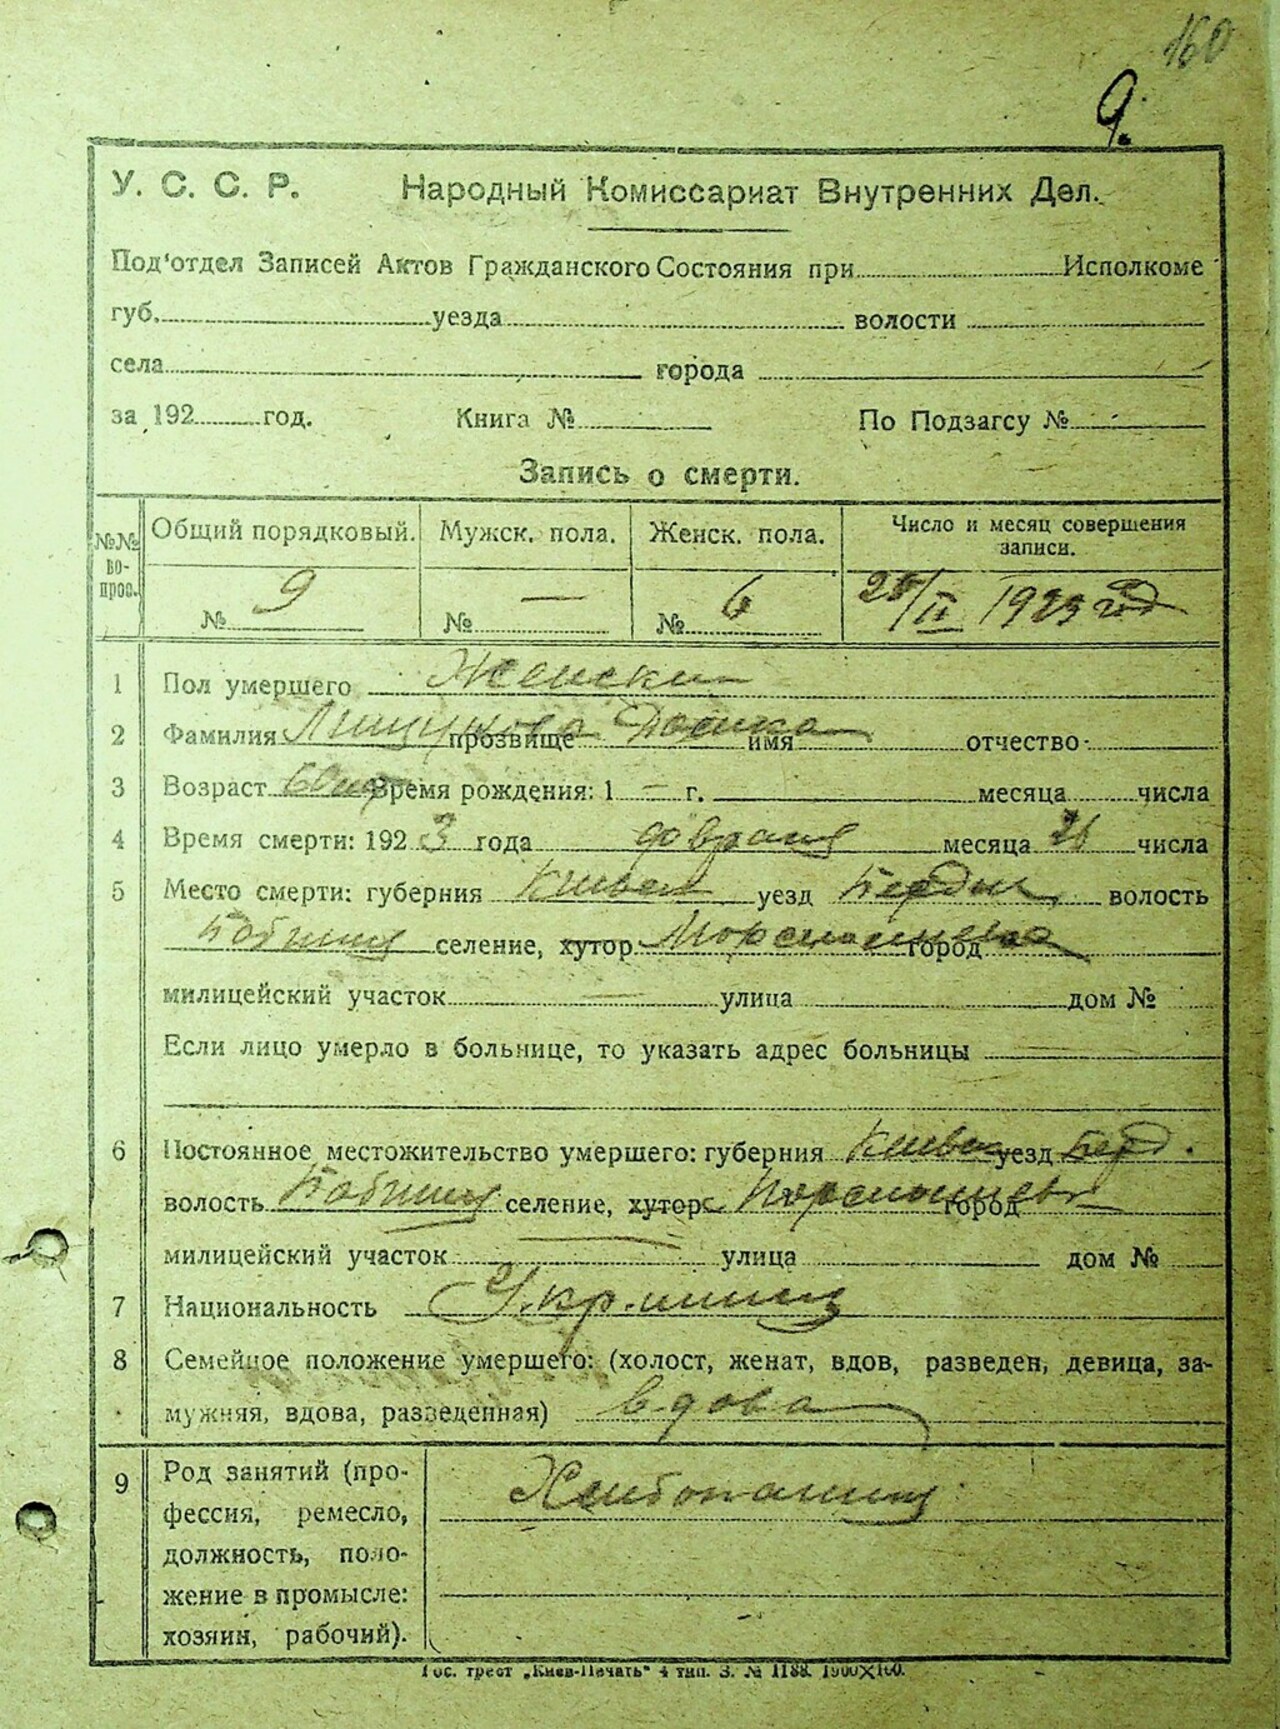 160
9.
У. С. С. Р. Народный Комиссариат Внутренних Дел.
Под'отдел Записей Актов Гражданского Состояния при Исполкоме
губ. уезда волости
села города
за 192 год. Книга № По Подзагсу №
Запись о смерти.
№№ вопрос. Общий порядковый. Мужск. пола. Женск. пола. Число и месяц совершения записи.
№ 9 № — № 6 /II 1923 год
1 Пол умершего Женски
2 Фамилия прозвище имя отчество
3 Возраст Время рождения: 1 — г. месяца числа
4 Время смерти: 1923 года февраля месяца 26 числа
5 Место смерти: губерния Киевск уезд Бердич волость
селение, хутор город
милицейский участок — улица дом №
Если лицо умерло в больнице, то указать адрес больницы —
6 Постоянное местожительство умершего: губерния Киевск уезд Берд.
волость селение, хутор город
милицейский участок — улица дом №
7 Национальность
8 Семейное положение умершего: (холост, женат, вдов, разведен, девица, за-
мужняя, вдова, разведенная) вдова
9 Род занятий (про-
фессия, ремесло,
должность, поло-
жение в промысле:
хозяин, рабочий).
Гос. трест „Киев-Печать" 4 тип. З. № 1188. 1000×100.